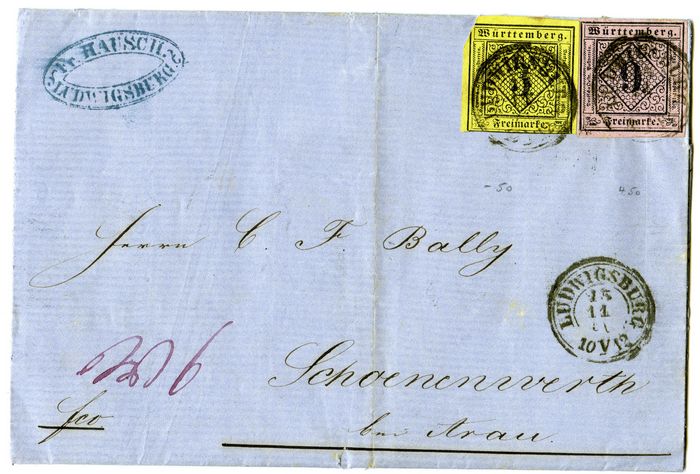 Fr. HAUSCH.
LUDWIGSBURG
Württemberg.
3
Freimarke.
Württemberg.
9
Freimarke.
LUDWIGSBURG
- 50
450
Herrn C. F. Bally
LUDWIGSBURG
15
11
10 V 12
6
Schoenenwerth
bei Arau.
fco